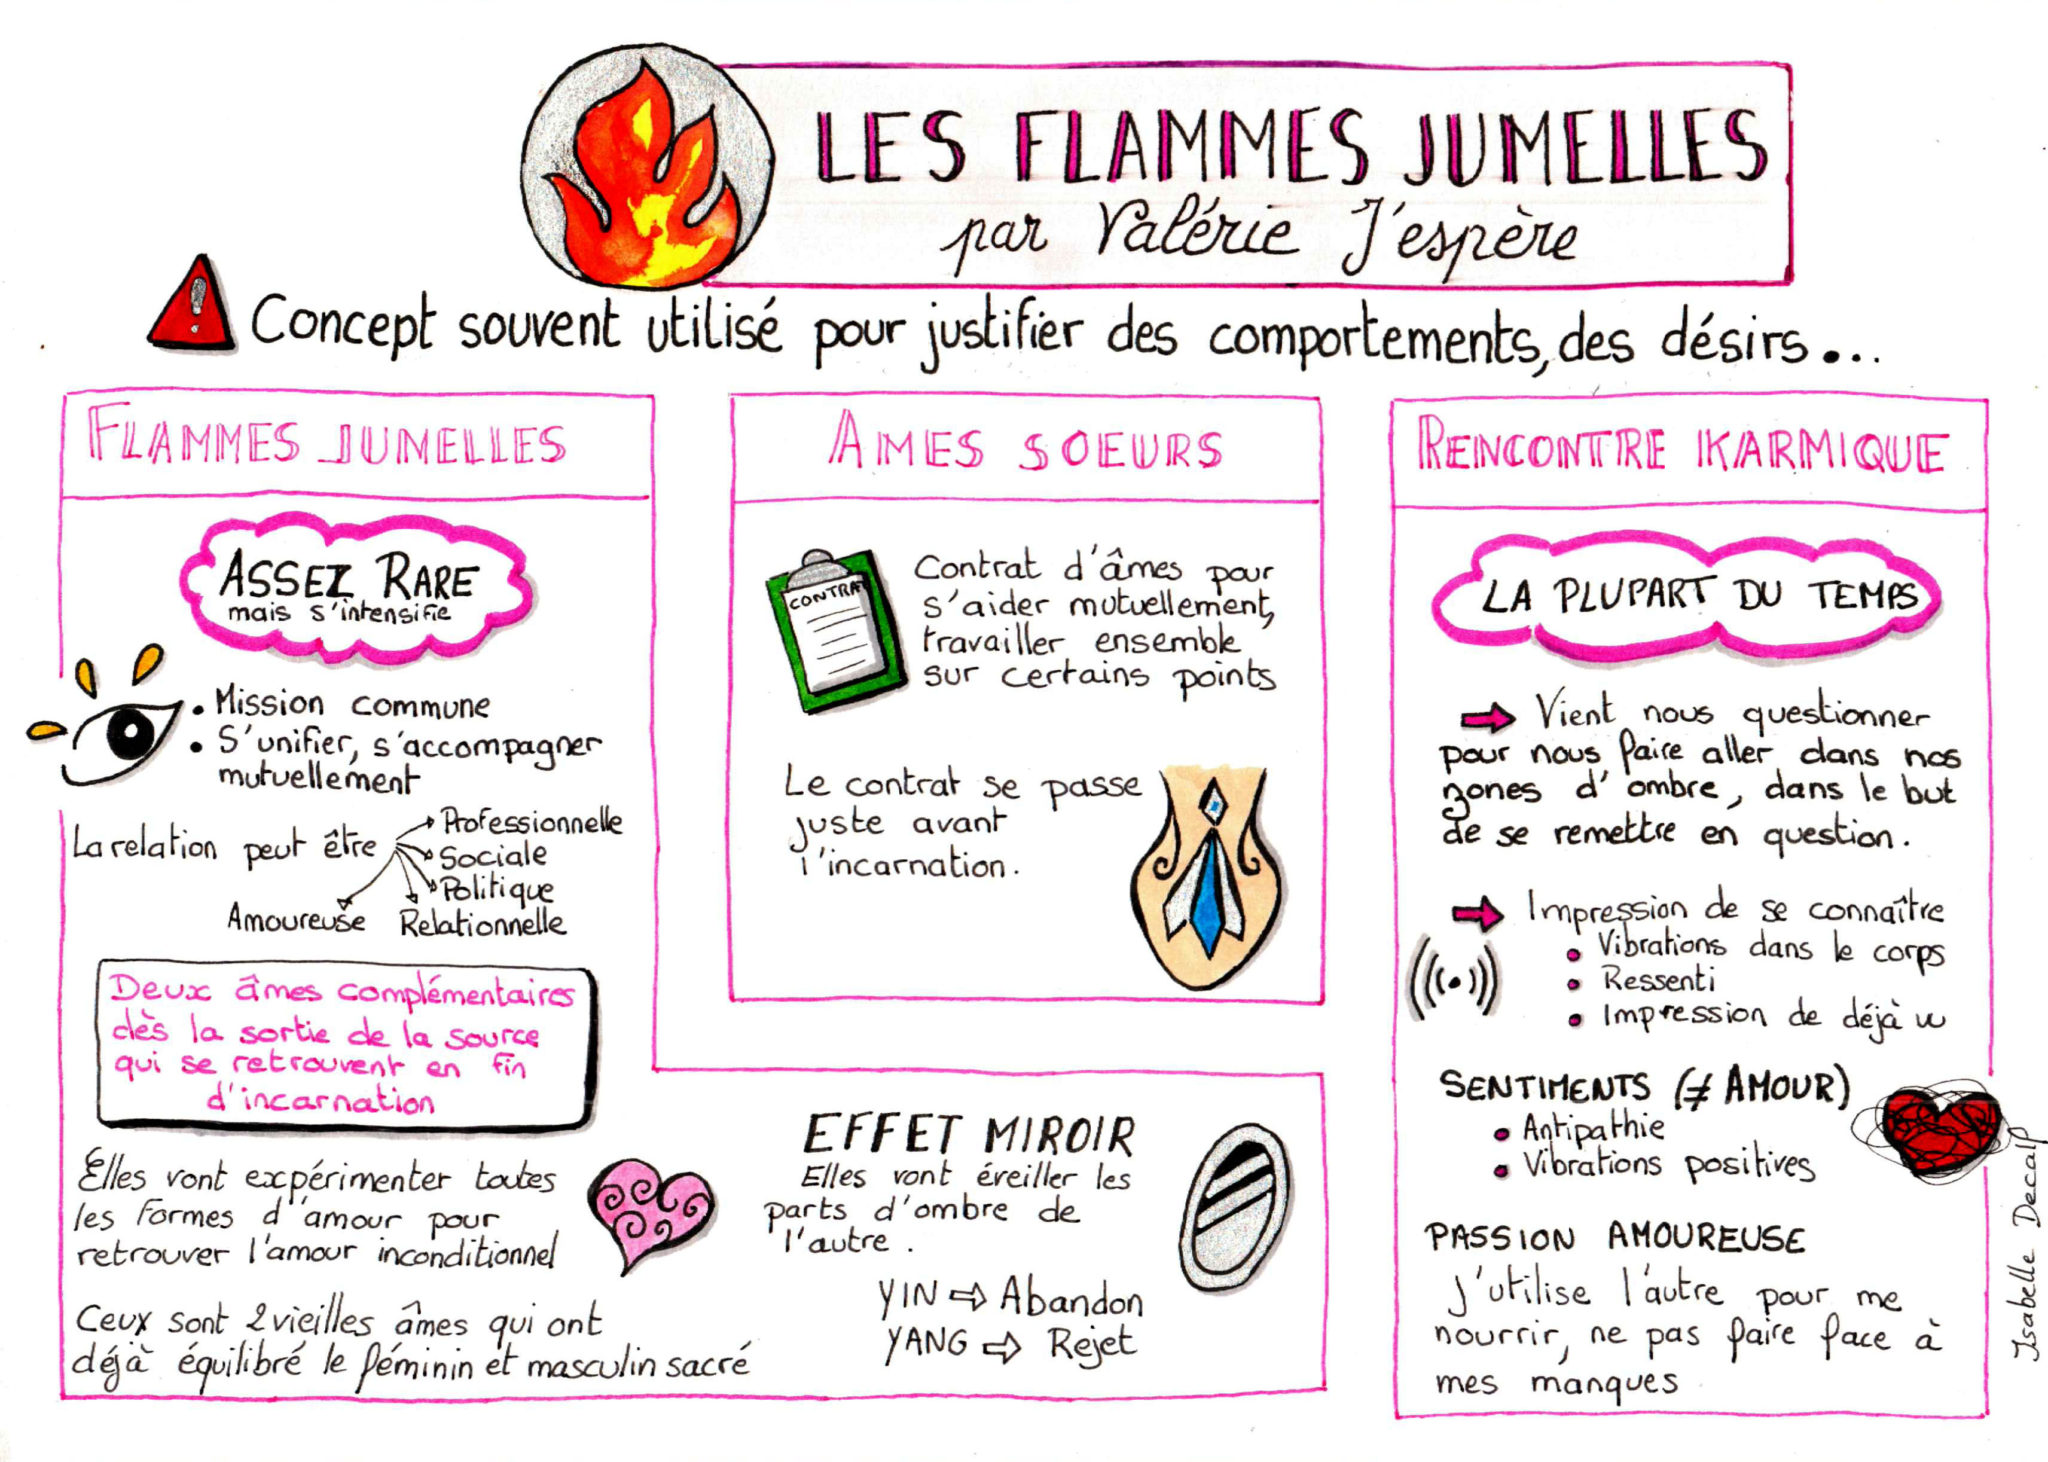 LES FLAMMES JUMELLES
par Valérie J'espère
Concept souvent utilisé pour justifier des comportements, des désirs...
FLAMMES JUMELLES
ASSEZ RARE
mais s'intensifie
• Mission commune
• S'unifier, s'accompagner
mutuellement
La relation peut être
Professionnelle
Sociale
Politique
Relationnelle
Amoureuse
Deux âmes complémentaires
dès la sortie de la source
qui se retrouvent en fin
d'incarnation
Elles vont expérimenter toutes
les formes d'amour pour
retrouver l'amour inconditionnel
Ceux sont 2 vieilles âmes qui ont
déjà équilibré le féminin et masculin sacré
EFFET MIROIR
Elles vont éveiller les
parts d'ombre de
l'autre.
YIN ⇨ Abandon
YANG ⇨ Rejet
AMES SOEURS
CONTRAT
Contrat d'âmes pour
s'aider mutuellement,
travailler ensemble
sur certains points
Le contrat se passe
juste avant
l'incarnation.
RENCONTRE KARMIQUE
LA PLUPART DU TEMPS
Vient nous questionner
pour nous faire aller dans nos
zones d'ombre, dans le but
de se remettre en question.
Impression de se connaître
• Vibrations dans le corps
• Ressenti
• Impression de déjà vu
SENTIMENTS (≠ AMOUR)
• Antipathie
• Vibrations positives
PASSION AMOUREUSE
J'utilise l'autre pour me
nourrir, ne pas faire face à
mes manques
Isabelle Decalp